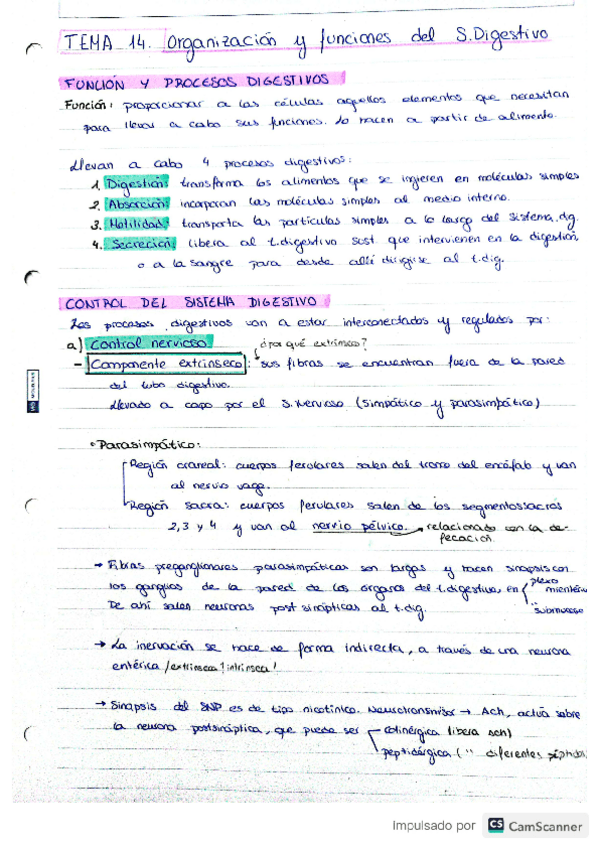 TEMA 14. Organización y funciones del S.Digestivo
FUNCIÓN Y PROCESOS DIGESTIVOS
Función: proporcionar a las células aquellos elementos que necesitan
para llevar a cabo sus funciones. Lo hacen a partir de alimento.
Llevan a cabo 4 procesos digestivos:
1. Digestión: transforma los alimentos que se ingieren en moléculas simples
2. Absorción: incorporan las moléculas simples al medio interno.
3. Motilidad: transporta las partículas simples a lo largo del sistema dg.
4. Secreción: libera al t.digestivo sust que intervienen en la digestión,
o a la sangre para desde allí dirigirse al t.dig.
CONTROL DEL SISTEMA DIGESTIVO
Los procesos digestivos van a estar interconectados y regulados por:
a) Control nervioso ¿por qué extrínseco?
- Componente extrínseco: sus fibras se encuentran fuera de la pared
del tubo digestivo.
Llevado a capo por el S.Nervioso (simpático y parasimpático)
• Parasimpático:
Región craneal: cuerpos ferulares salen del tronco del encéfalo y van
al nervio vago.
Región sacra: cuerpos ferulares salen de los segmentos sacros
2, 3 y 4 y van al nervio pélvico. → relacionado con la de-
fecación.
→ Fibras preganglionares parasimpáticas son largas y hacen sinapsis con
los ganglios de la pared de los órganos del t.digestivo, en plexo mientérico
submucoso
De ahí salen neuronas post sinápticas al t.dig.
→ La inervación se hace de forma indirecta, a través de una neurona
entérica / extrínseca! intrínseca!
→ Sinapsis del SNP es de tipo nicotínico. Neurotransmisor → Ach, actúa sobre
la neurona postsináptica, que puede ser colinérgica (libera ach)
peptidérgica ( " diferentes péptidos)
Impulsado por CS CamScanner